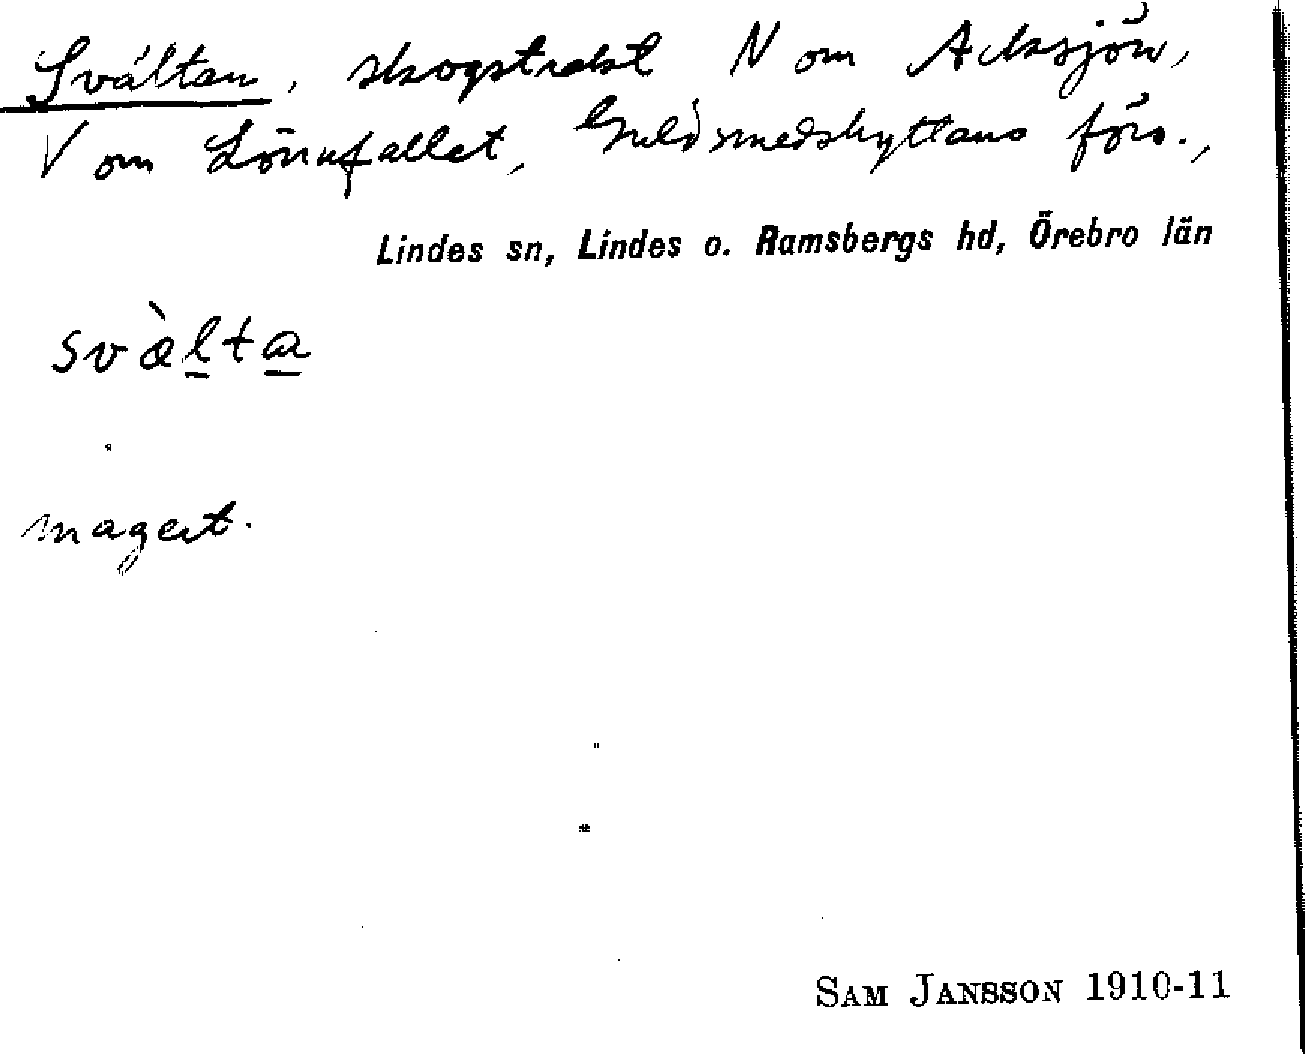 Svältan, skogstrakt N om Acksjön,
V om Lönnfallet, Guldsmedshyttans förs.,
Lindes sn, Lindes o. Ramsbergs hd, Örebro län
svæ̀lta
magert.
SAM JANSSON 1910-11